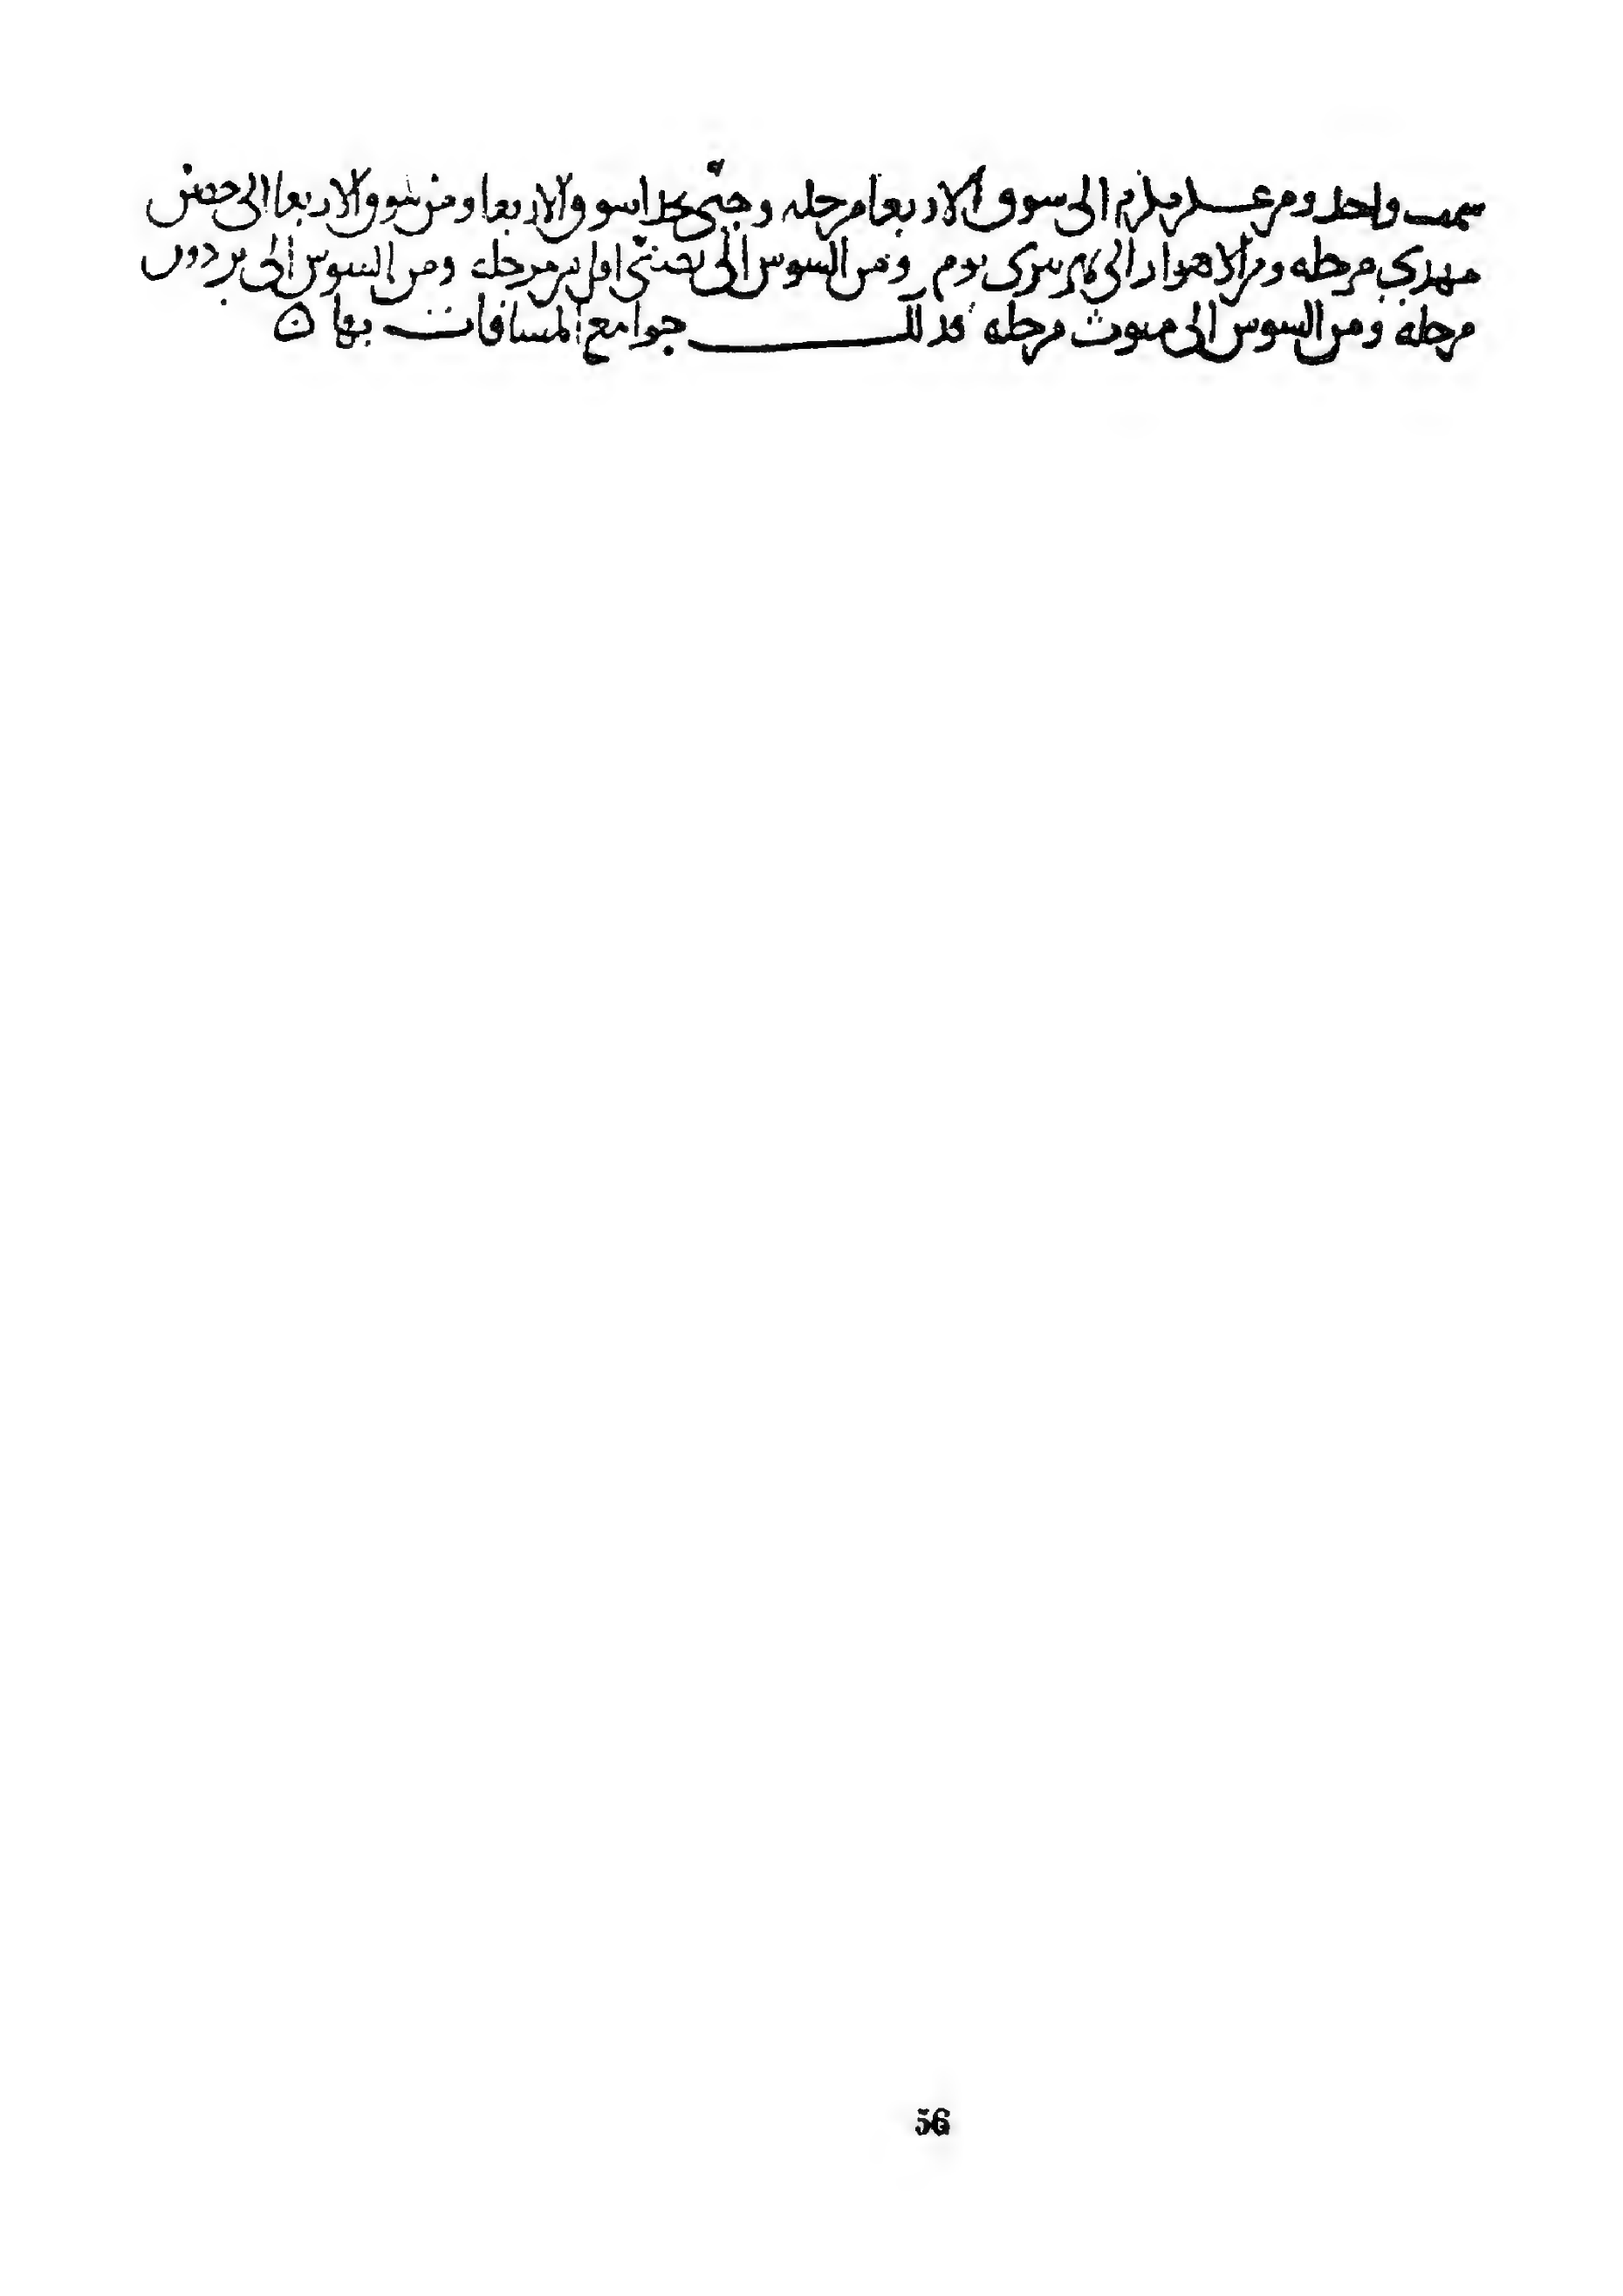 سمت واحد ومن عسكر مكرم الى سوق الاربعا مرحله وجبى تحد اسوق الاربعا ومن سوق الاربعا الى حصن
مهدي مرحله ومن الاهواز الى نهر تيرى يوم ومن السوس الى بصنى اقل من مرحله ومن السوس الى بردون
مرحله ومن السوس الى متوث مرحله فذلك جوامع المسافات بها ن
56